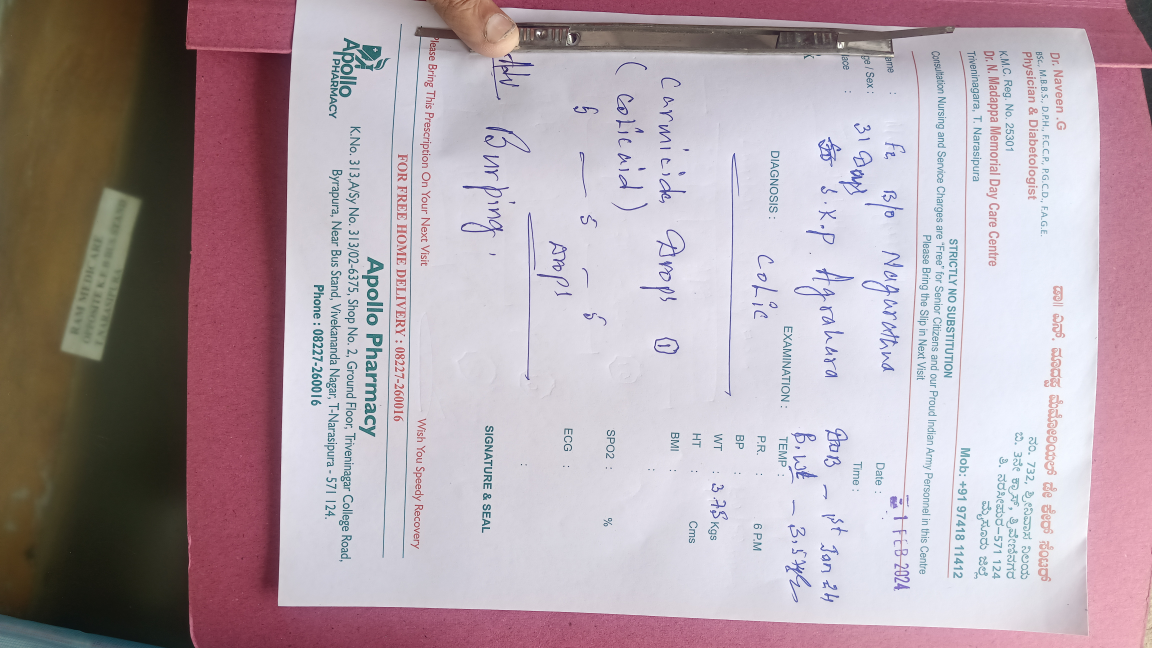 Dr. Naveen .G
BSc., M.B.B.S., D.P.H., F.C.C.P., P.G.C.D., F.A.G.E.
Physician & Diabetologist
K.M.C. Reg. No. 25301
Dr. N. Madappa Memorial Day Care Centre
Triveninagara, T. Narasipura
ಡಾ॥ ಎನ್. ಮಾದಪ್ಪ ಮೆಮೋರಿಯಲ್ ಡೇ ಕೇರ್ ಸೆಂಟರ್
ನಂ. 732, ಶ್ರೀನಿವಾಸ ನಿಲಯ
ಬಿ. 3ನೇ ಕ್ರಾಸ್, ತ್ರಿವೇಣಿನಗರ
ತಿ. ನರಸೀಪುರ-571 124
ಮೈಸೂರು ಜಿಲ್ಲೆ
Mob: +91 97418 11412
STRICTLY NO SUBSTITUTION
Consultation Nursing and Service Charges are "Free" for Senior Citizens and our Proud Indian Army Personnel in this Centre
Please Bring the Slip in Next Visit
ame : B/o Nagarathna Date : 1 FEB 2024
ge / Sex : 31 Days Time :
lace : S.K.P. Agrahara DOB - 1st Jan 24
B.wt - 3.5 kgs
DIAGNOSIS : EXAMINATION : TEMP
Colic P.R. : 6 P.M
BP :
WT : 3.75 Kgs
HT : Cms
BMI :
SPO2 : %
ECG :
Carmicide Drops ①
(Colicaid)
5 — 5 — 5
Drops
Burping.
SIGNATURE & SEAL
Please Bring This Prescription On Your Next Visit Wish You Speedy Recovery
FOR FREE HOME DELIVERY : 08227-260016
Apollo
PHARMACY
Apollo Pharmacy
K.No. 313,A/Sy No. 313/02-6375, Shop No. 2, Ground Floor, Triveninagar College Road,
Byrapura, Near Bus Stand, Vivekananda Nagar, T-Narasipura - 571 124.
Phone : 08227-260016